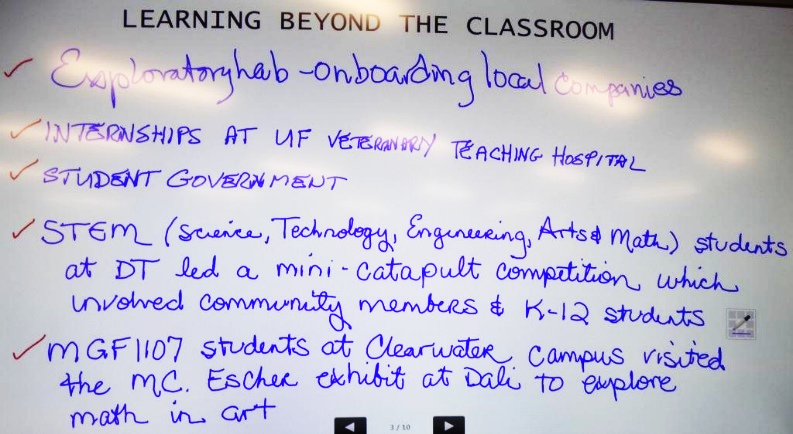 LEARNING BEYOND THE CLASSROOM
✓ Exploratory hab - onboarding local Companies
✓ INTERNSHIPS AT UF VETERANARY TEACHING HOSPITAL
✓ STUDENT GOVERNMENT
✓ STEM (Science, Technology, Engineering, Arts & Math) students
at DT led a mini-catapult competition which
involved community members & K-12 students
✓ MGF1107 students at Clearwater Campus visited
the M.C. Escher exhibit at Dali to explore
math in art
3 / 10